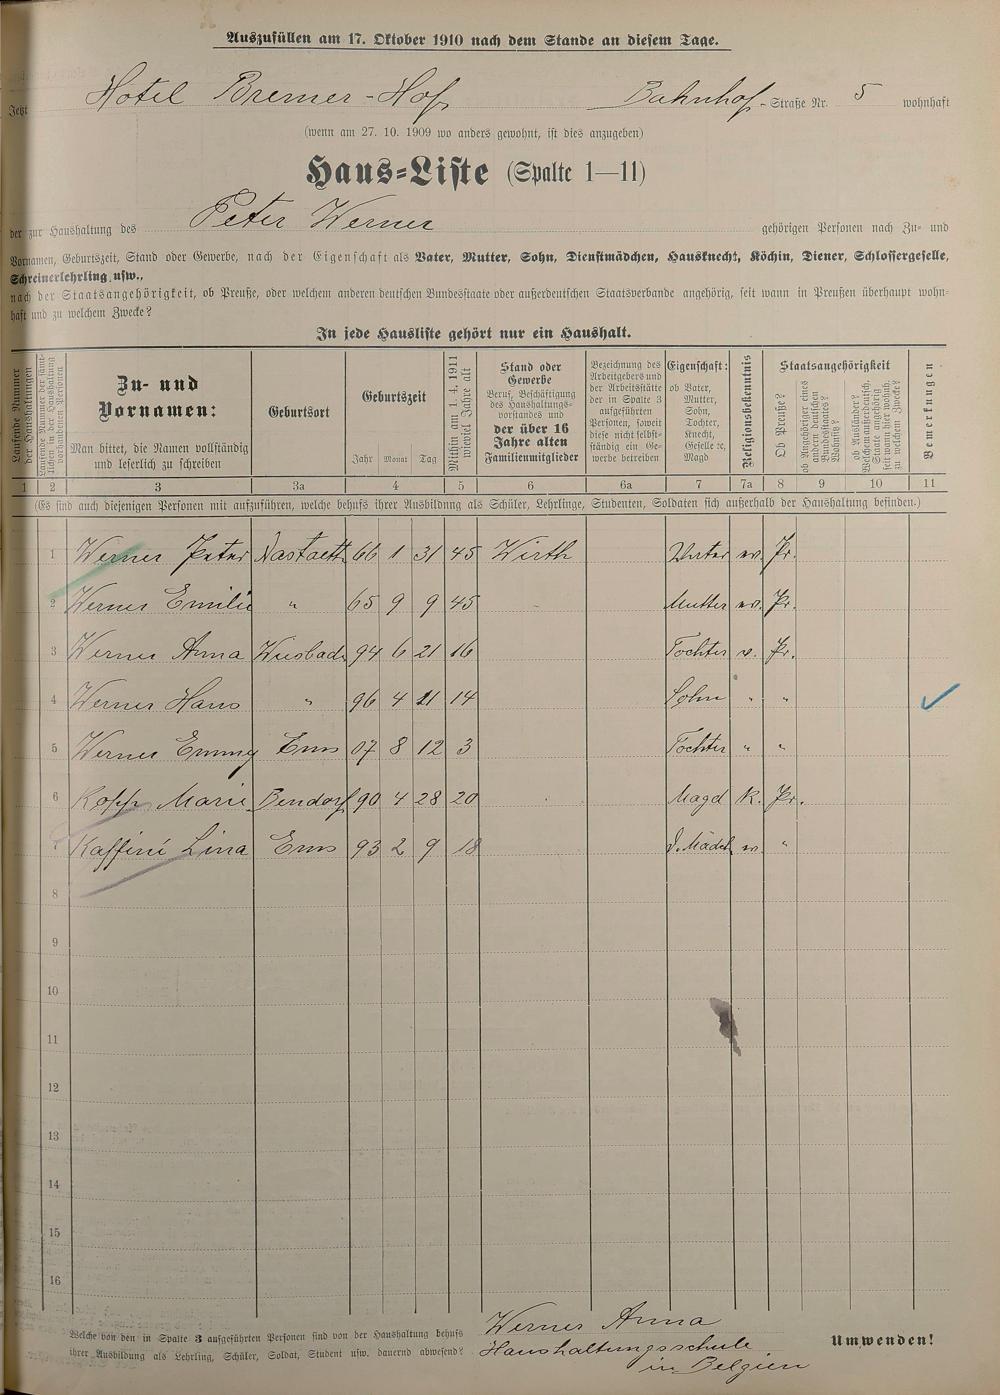 Auszufüllen am 17. Oktober 1910 nach dem Stande an diesem Tage.
Jetzt Hotel Bremer-Hof Bahnhof - Straße Nr. 5 wohnhaft
(wenn am 27. 10. 1909 wo anders gewohnt, ist dies anzugeben)
Haus=Liste (Spalte 1—11)
der zur Haushaltung des Peter Werner gehörigen Personen nach Zu- und
Vornamen, Geburtszeit, Stand oder Gewerbe, nach der Eigenschaft als Vater, Mutter, Sohn, Dienstmädchen, Hausknecht, Köchin, Diener, Schlossergeselle,
Schreinerlehrling usw.,
nach der Staatsangehörigkeit, ob Preuße, oder welchem anderen deutschen Bundesstaate oder außerdeutschen Staatsverbande angehörig, seit wann in Preußen überhaupt wohn=
haft und zu welchem Zwecke?
In jede Hausliste gehört nur ein Haushalt.
Laufende Nummer der Haushaltungen
Laufende Nummer der sämt-
lichen in der Haushaltung
vorhandenen Personen
Zu- und
Vornamen:
Man bittet, die Namen vollständig
und leserlich zu schreiben
Geburtsort
Geburtszeit
Jahr Monat Tag
Mithin am 1. 4. 1911
wieviel Jahre alt
Stand oder
Gewerbe
Beruf, Beschäftigung
des Haushaltungs-
vorstandes und
der über 16
Jahre alten
Familienmitglieder
Bezeichnung des
Arbeitgebers und
der Arbeitsstätte
der in Spalte 3
aufgeführten
Personen, soweit
diese nicht selbst-
ständig ein Ge-
werbe betreiben
Eigenschaft:
ob Vater,
Mutter,
Sohn,
Tochter,
Knecht,
Geselle ꝛc,
Magd
Religionsbekenntnis
Staatsangehörigkeit
Ob Preuße?
ob Angehöriger eines
andern deutschen
Bundesstaates?
Wohnsitz?
ob Ausländer?
Welchem außerdeutsch.
Staate angehörig
seit wann hier wohnh.
zu welchem Zwecke?
Bemerkungen
1 2 3 3a 4 5 6 6a 7 7a 8 9 10 11
(Es sind auch diejenigen Personen mit aufzuführen, welche behufs ihrer Ausbildung als Schüler, Lehrlinge, Studenten, Soldaten sich außerhalb der Haushaltung befinden.)
1 Werner Peter Nastaett. 66 1 31 45 Wirth Vater ev. Pr.
2 Werner Emilie " 65 9 9 45 Mutter ev. Pr.
3 Werner Anna Wiesbad. 94 6 21 16 Tochter ev. Pr.
4 Werner Hans " 96 4 11 14 Sohn " "
5 Werner Emmy Ems 07 8 12 3 Tochter " "
6 Kopp Marie Bendorf 90 4 28 20 Magd K. Pr.
7 Kaffiné Lina Ems 93 2 9 18 D. Mädch. ev. "
8
9
10
11
12
13
14
15
16
Welche von den in Spalte 3 aufgeführten Personen sind von der Haushaltung behufs
ihrer Ausbildung als Lehrling, Schüler, Soldat, Student usw. dauernd abwesend?
Werner Anna
Haushaltungsschule
in Belgien
Umwenden!